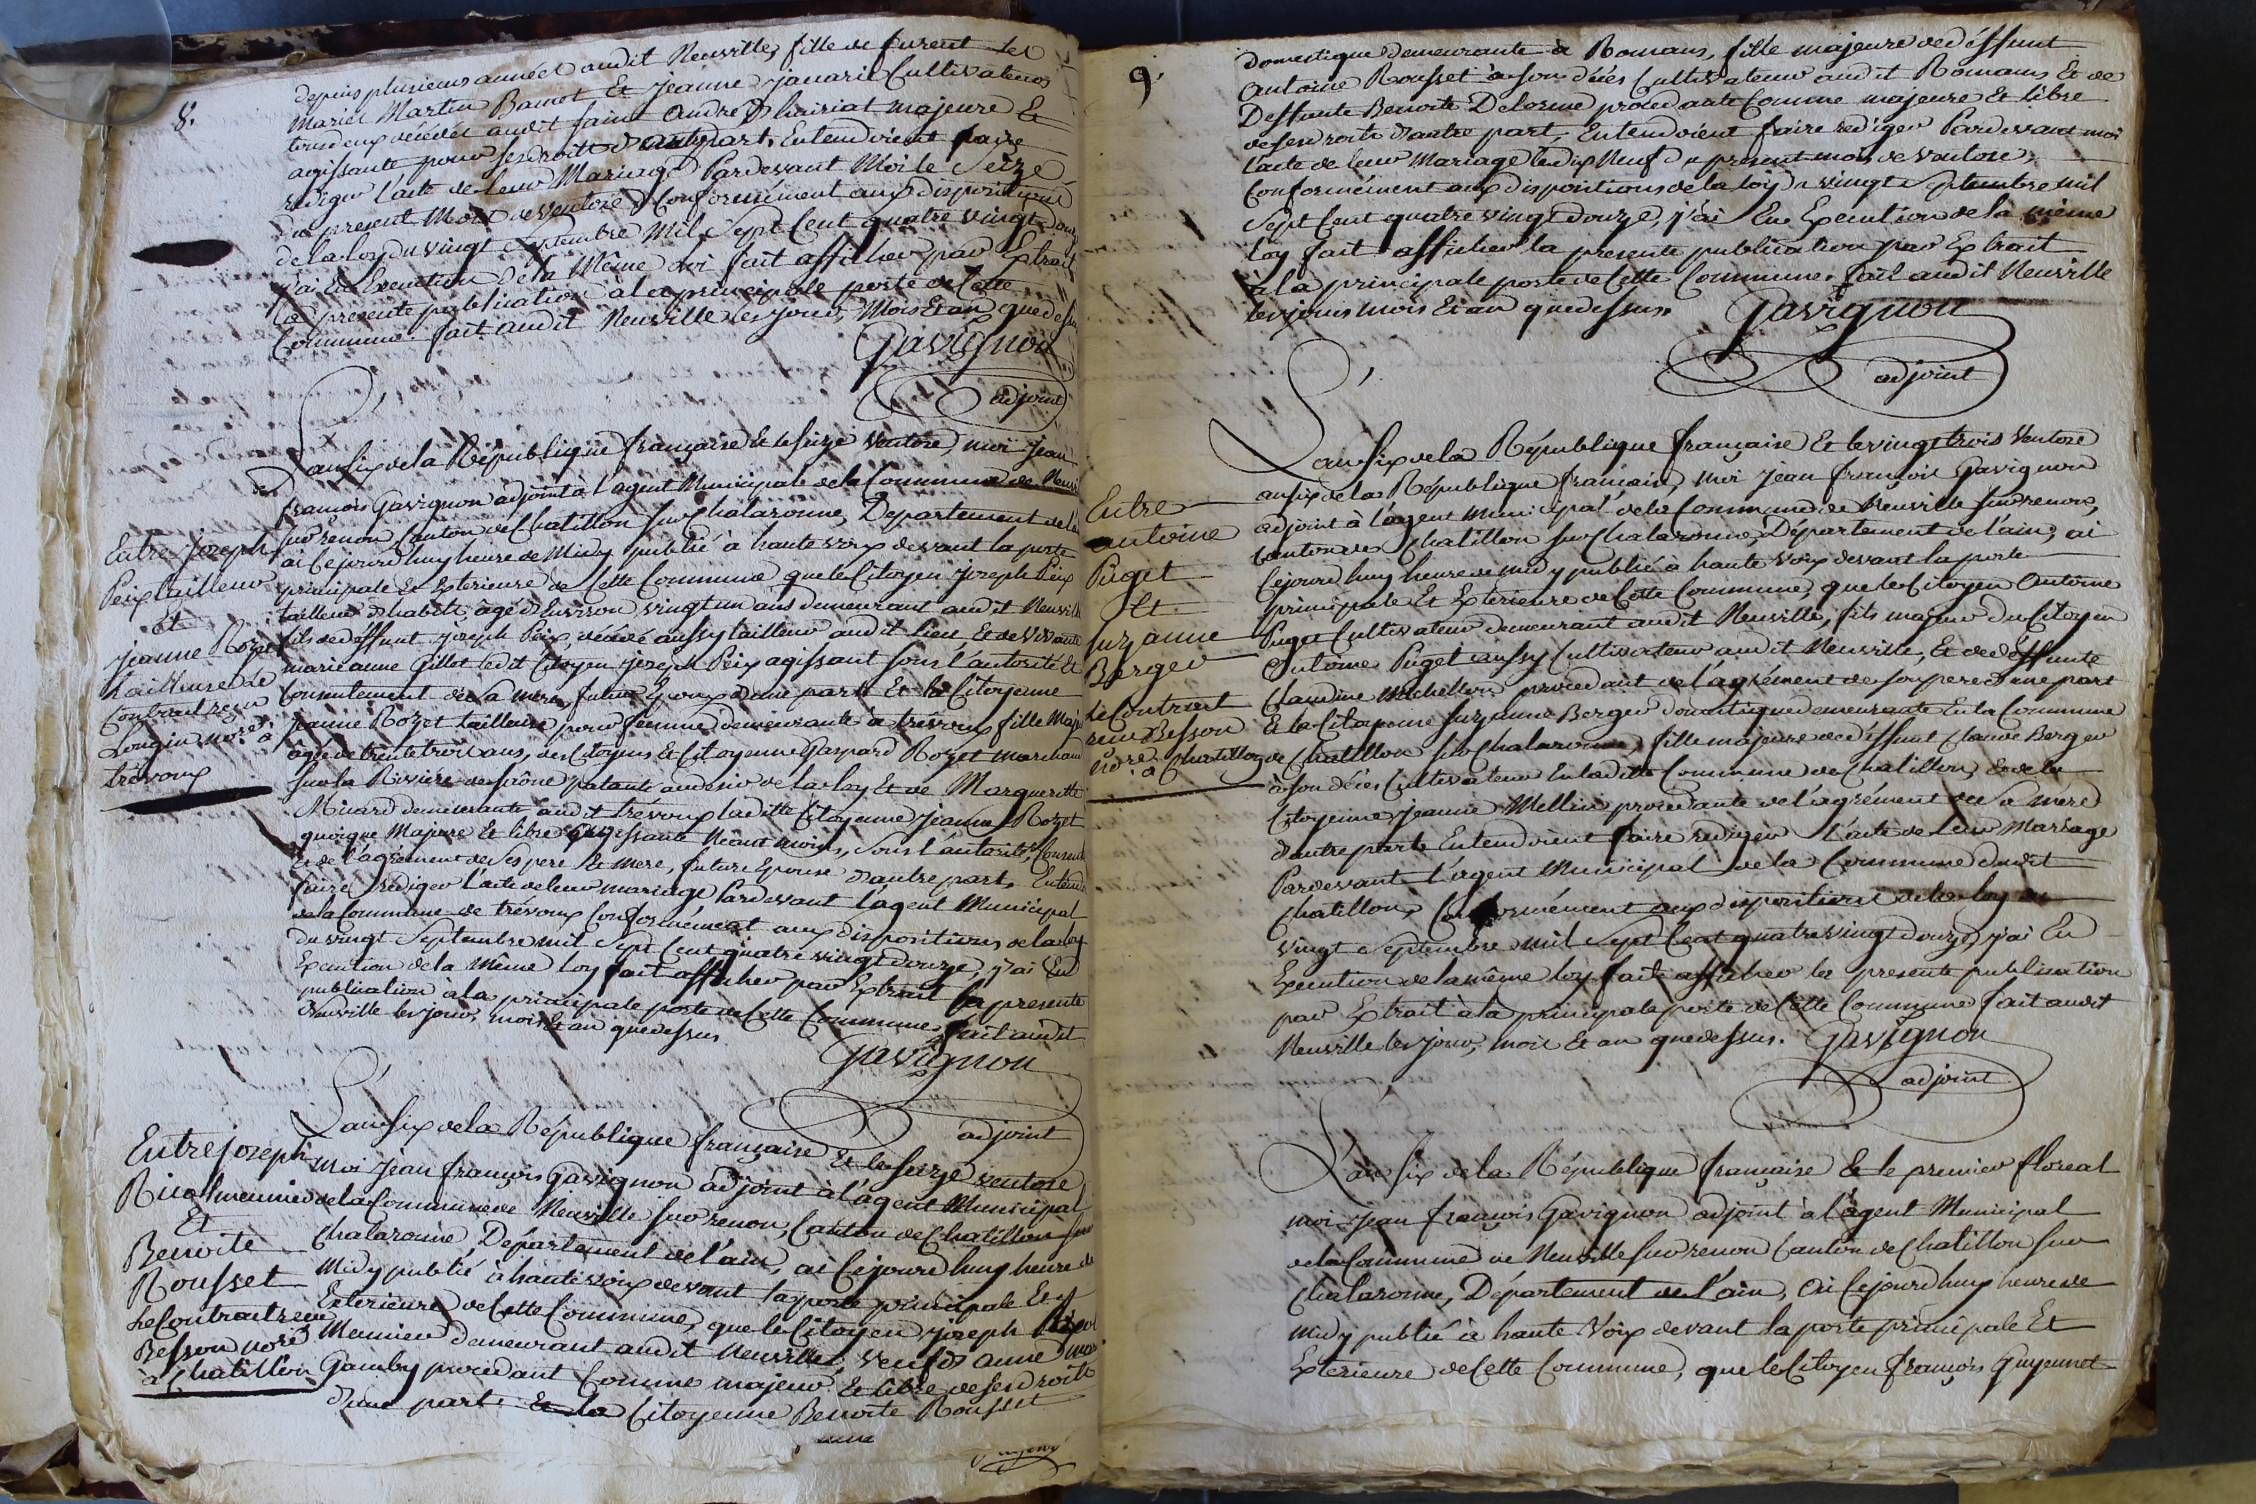 8.
depuis plusieurs années audit Neuville, fille de furent les
Mariés Martin Bamot Et Jeanne Janarie Cultivateurs
tous deux décédés audit saint André D'huiriat majeure Et
agissante pour ses droits d'autre part, Entendoient faire
rediger l'acte de leur Mariage Pardevant Moi le Seize
du present Mois de ventose Conformément aux dispositions
de la loy du vingt Septembre Mil Sept Cent quatre vingt douze
j'ai En Execution de la Même loi fait afficher par Extrait
la presente publication à la principale porte de Cette
Commune. fait audit Neuville les jour, Mois Et an que dessus
Gavignon
adjoint
L'an six de la République française Et le seize ventose, moi Jean
françois Gavignon adjoint à l'agent Municipale de la Commune de Neuville
sur renon Canton de Chatillon sur Chalaronne, Departement de l'ain
ai Cejourd'huy heure de Midy publié à haute voix devant la porte
principale Et Exterieure de Cette Commune que le Citoyen Joseph Peix
tailleur d'habits, agé d'Environ vingt un ans demeurant audit Neuville
fils de deffunt Joseph Peix, décédé aussy tailleur audit lieu Et de vivante
marieanne Gillot ledit Citoyen Joseph Peix agissant sous l'autorité Et
Consentement de sa mere, futur Epoux d'une part Et la Citoyenne
Jeanne Rozet tailleuse pour femme, demeurante à trévoux fille Majeure
agée de trente trois ans, des Citoyens Et Citoyenne Gaspard Rozet marchand
sur la Riviére de saône patanté au desir de la loy Et de Marguerite
Minard demeurante audit trévoux laditte Citoyenne Jeanne Rozet
quoique Majeure Et libre agissante Néantmoins, sous l'autorité, Consent.
Et de l'agrément de ses pere Et mere, future Epouse d'autre part, Entend
faire rediger l'acte de leur mariage Pardevant l'agent Municipal
de la Commune de trévoux Conformément aux dispositions de la loy
du vingt Septembre mil Sept Cent quatre vingt douze, j'ai En
Execution de la Même loy fait afficher par Extrait la presente
publication a la principale porte de Cette Commune, fait audit
Neuville les jour, mois Et an que dessus
Gavignon
adjoint
Entre Joseph
Peix tailleur
Et
Jeanne Rozet
tailleuse Le
Contrat reçu
Longin nore. à
trévoux
L'an six de la République française Et le seize ventose
moi Jean françois Gavignon adjoint à l'agent Municipal
de la Commune de Neuville sur renon, Canton de Chatillon sur
Chalaronne Département de l'ain, ai Cejourd'huy heure de
Midy publié à haute voix devant la porte principale Et
Exterieure de Cette Commune, que le Citoyen Joseph
Meunier demeurant audit Neuville, veuf d'anne
Gamby procedant Comme majeur Et libre de ses droits
d'une part. Et la Citoyenne Benoite Rousset
Entre Joseph
meunier
Et
Benoite
Rousset
Le Contrat reçu
Besson nore
à Chatillon
9.
Domestique Demeurante à Romans, fille majeure de deffunt
Antoine Rousset à son décés Cultivateur audit Romans Et de
Deffunte Benoite Delorme procedante Comme majeure Et libre
de ses droits d'autre part, Entendoient faire rediger Pardevant moi
l'acte de leur Mariage le dix Neuf du present mois de ventose,
Conformément aux dispositions de la loy du vingt Septembre mil
Sept Cent quatre vingt douze, j'ai En Execution de la même
loy fait afficher la presente publication par Extrait
à la principale porte de Cette Commune. fait audit Neuville
les jours mois Et an que dessus.
Gavignon
adjoint
L'an six de la République française Et le vingt trois Ventose
an six de la République française, moi Jean françois Gavignon
adjoint à l'agent Municipal de la Commune de Neuville sur renon,
Canton de Chatillon sur Chalaronne, Département de l'ain, ai
Cejourd'huy heure de midy publié à haute voix devant la porte
principale Et Exterieure de Cette Commune, que le Citoyen Antoine
Puget Cultivateur demeurant audit Neuville, fils majeur du Citoyen
Antoine Puget aussy Cultivateur audit Neuville, Et de deffunte
Claudine Michellon procedant de l'agrément de son pere d'une part
Et la Citoyenne Suzanne Berger domestique demeurante En la Commune
de Chatillon sur Chalaronne, fille majeure de deffunt Claude Berger
à son décés Cultivateur En laditte Commune de Chatillon, Et de la
Citoyenne Jeanne Mellin procedante de l'agrément de sa mere
d'autre part. Entendoient faire rediger l'acte de leur Mariage
Pardevant l'agent Municipal de la Commune dudit
Chatillon, Conformément aux dispositions de la loy du
vingt Septembre mil Sept Cent quatre vingt douze, j'ai En
Execution de la même loy fait afficher la presente publication
par Extrait à la principale porte de Cette Commune fait audit
Neuville les jour, mois Et an que dessus.
Gavignon
adjoint
Entre
Antoine
Puget
Et
Suzanne
Berger
Le Contrat
reçu Besson
nore. à Chatillon
L'an six de la République française Et le premier floreal
moi Jean françois Gavignon adjoint à l'agent Municipal
de la Commune de Neuville sur renon Canton de Chatillon sur
Chalaronne, Département de l'ain, ai Cejourd'huy heure de
midy publié à haute voix devant la porte principale Et
Exterieure de Cette Commune, que le Citoyen françois Guyennet